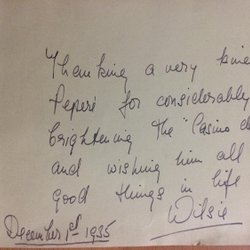 "Thanking a very kind
Peperé for considerably
brightening the "Casino d
and wishing him all
good things in life
Wilsie
December 1st 1935